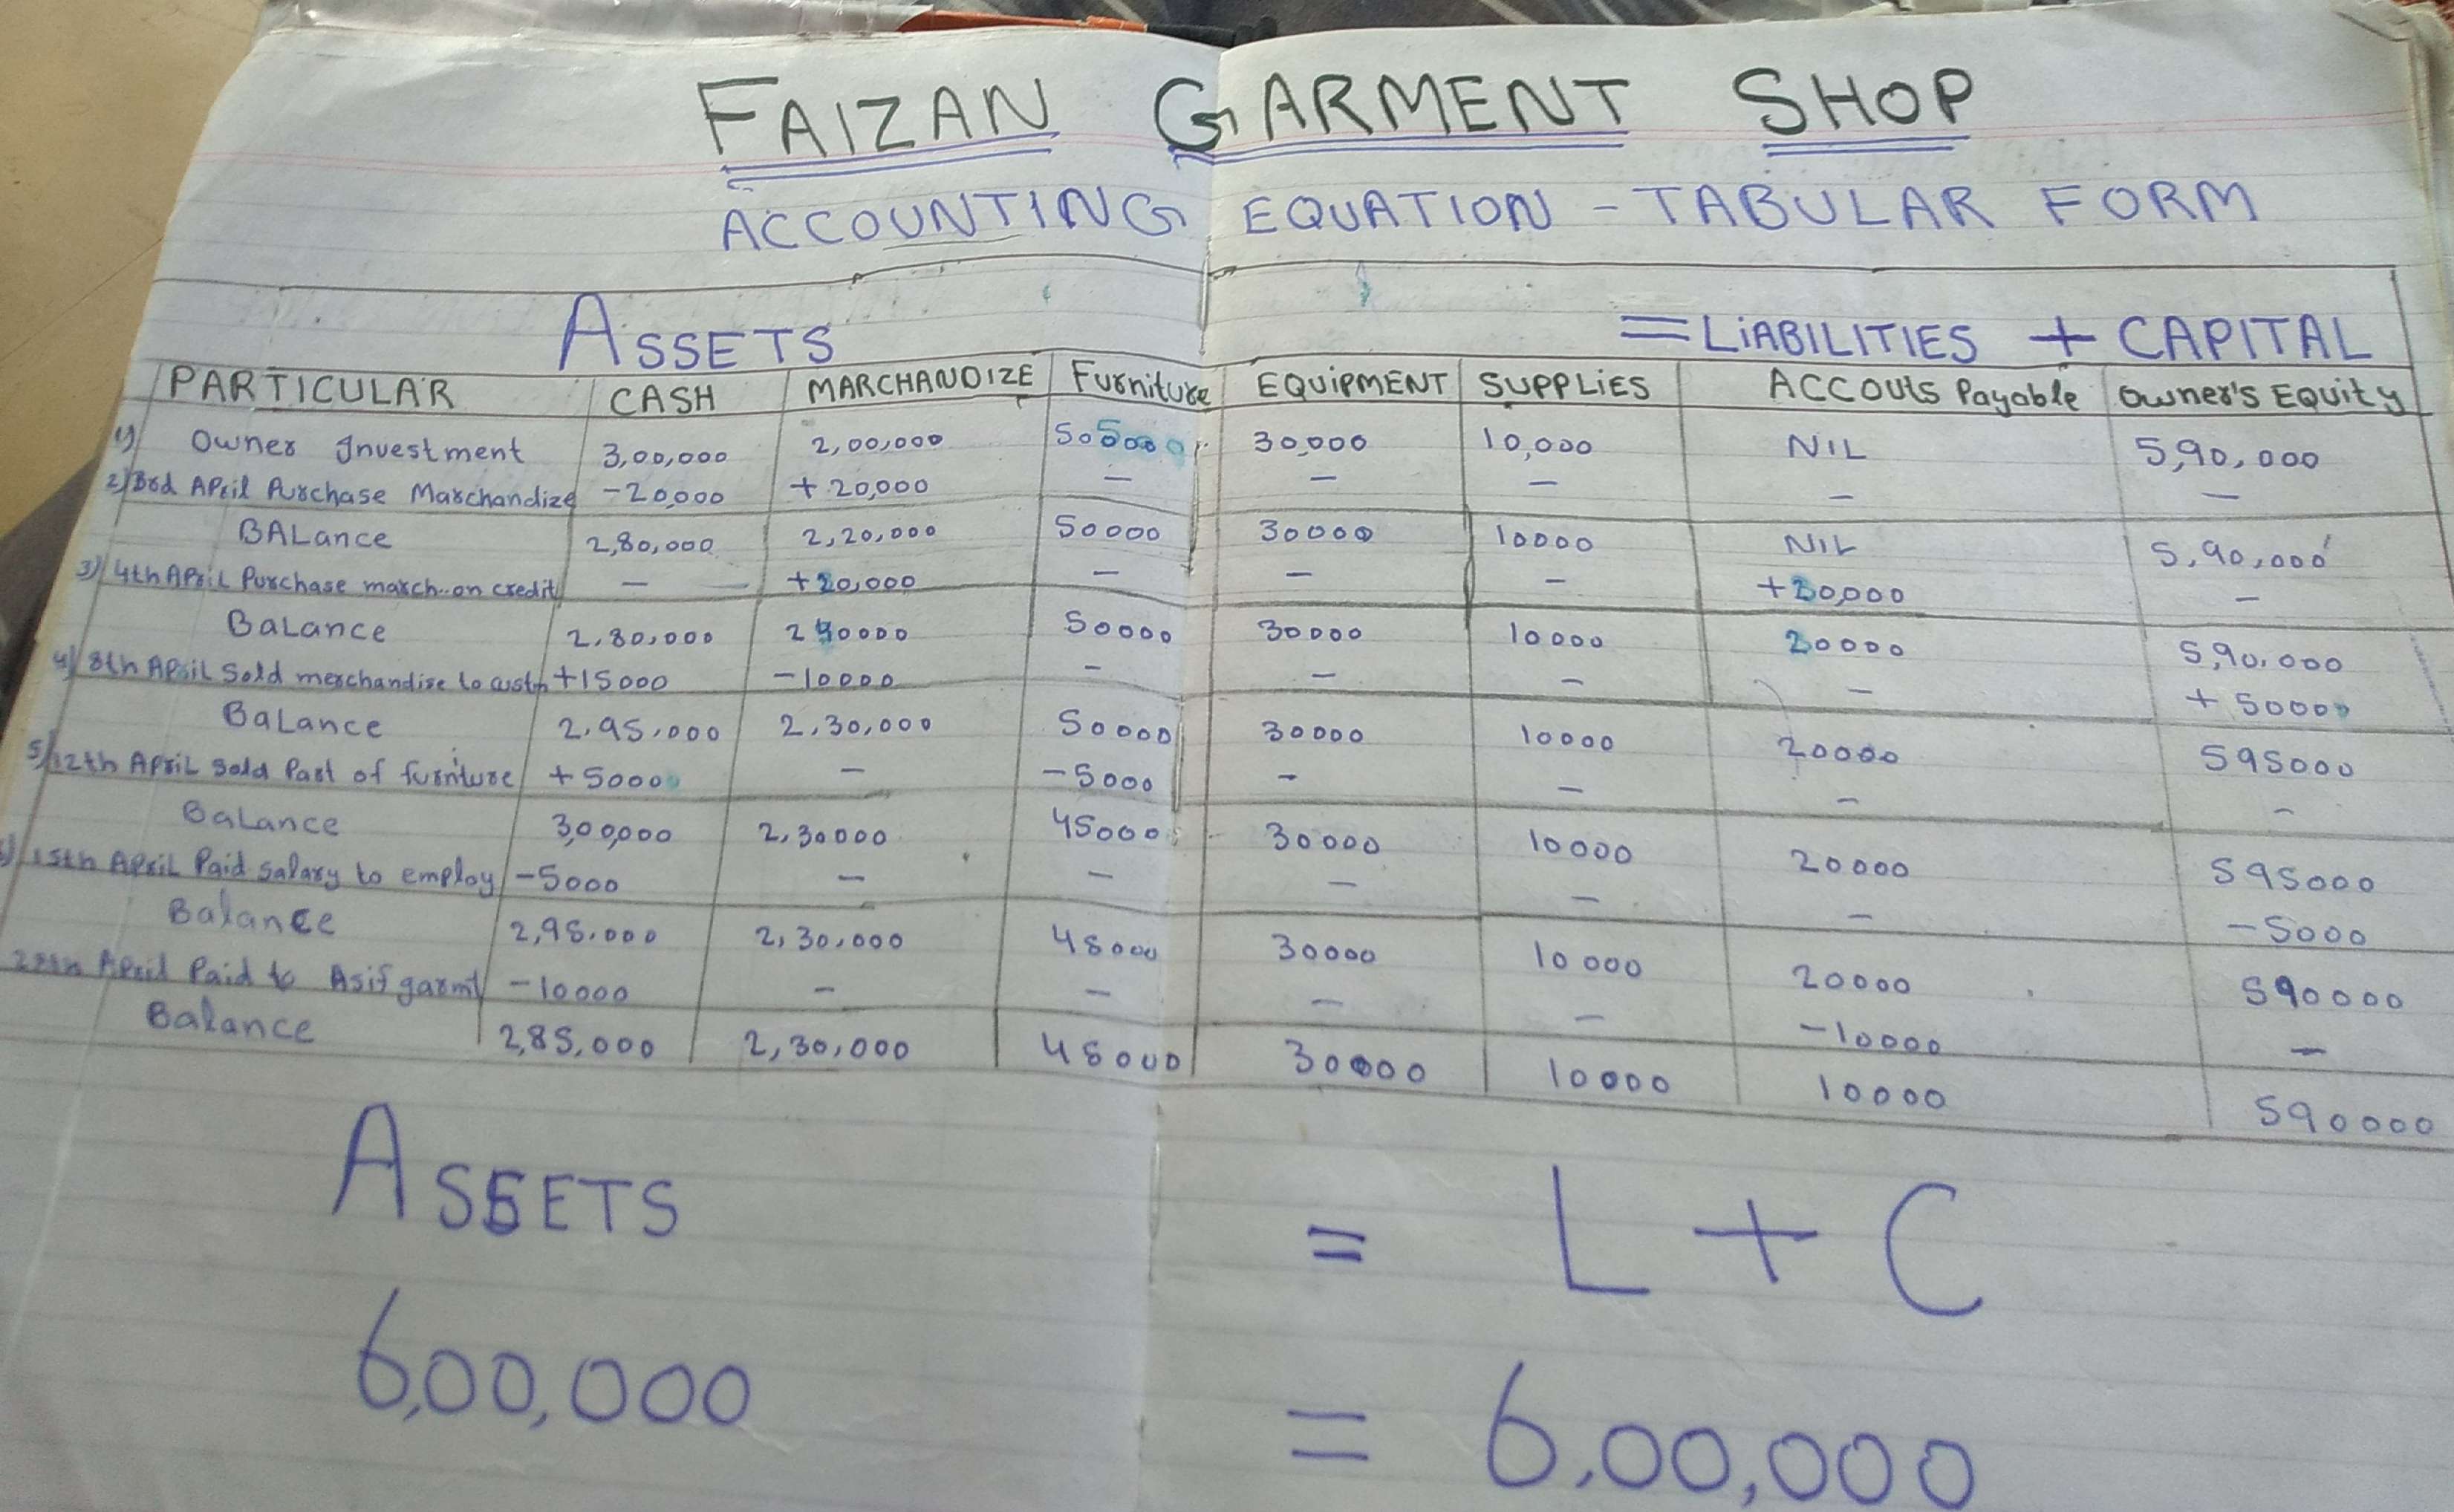 FAIZAN GARMENT SHOP
ACCOUNTING EQUATION - TABULAR FORM
ASSETS = LiABILITIES + CAPITAL
PARTICULAR CASH MARCHANDIZE Furniture EQUiPMENT SUPPLIES ACCOUts Payable Owner's EQuity
1) Owner Investment 3,00,000 2,00,000 30,000 10,000 NIL 5,90,000
2) 3rd APril Purchase Marchandize -20,000 + 20,000 — — — — —
BALance 2,80,000 2,20,000 50000 30000 10000 NIL 5,90,000
3) 4th APril Purchase march..on credit — +20,000 — — — +20,000 —
BaLance 2,80,000 240000 50000 30000 10000 20000 5,90,000
4) 8th APril Sold merchandise to custm +15000 -10000 — — — —
BaLance 2,95,000 2,30,000 50000 30000 10000 20000 595000
5) 12th APriL Sold Part of furniture + 5000 — -5000 — — — —
BaLance 3,00,000 2,30000 45000 30000 10000 20000 595000
15th APriL Paid Salary to employ -5000 — — — — — -5000
Balance 2,95,000 2,30,000 45000 30000 10000 20000 590000
April Paid to Asif garmt -10000 — — — — -10000 —
Balance 2,85,000 2,30,000 45000 30000 10000 10000 590000
ASSETS = L + C
6,00,000 = 6,00,000